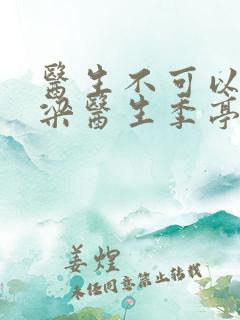 醫生不可以
梁醫生季亭
姜煌
未任同意禁止转载